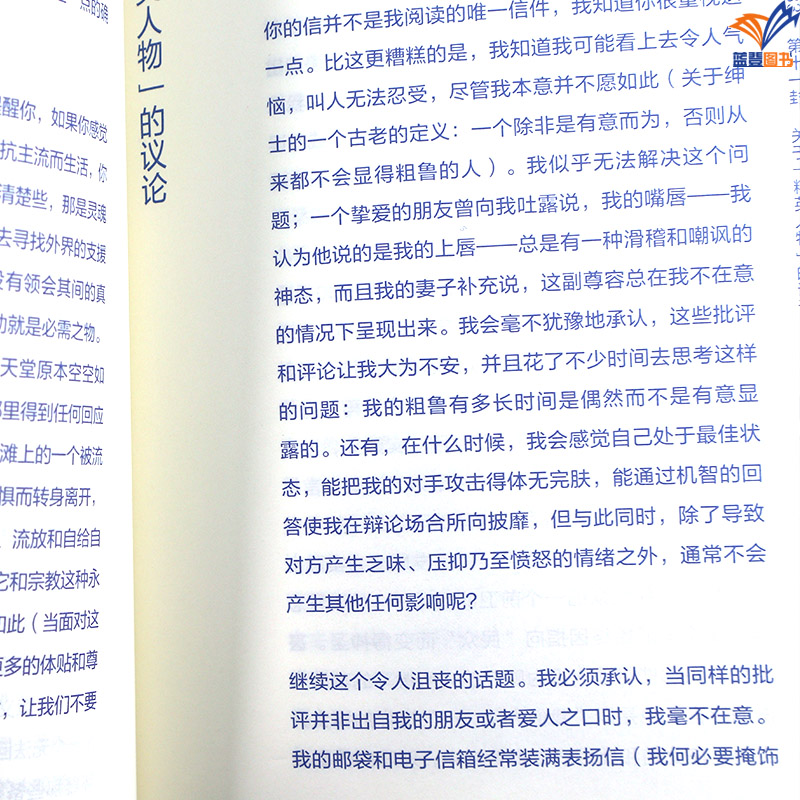 点的确
醒你，如果你感觉
抗主流而生活，你
清楚些，那是灵魂
去寻找外界的支援
没有领会其间的真
功就是必需之物。
天堂原本空空如
那里得到任何回应
滩上的一个被流
惧而转身离开，
、流放和自给自
它和宗教这种永
如此（当面对这
更多的体贴和尊
，让我们不要
人物」的议论
你的信并不是我阅读的唯一信件，我知道你很重视这
一点。比这更糟糕的是，我知道我可能看上去令人气
恼，叫人无法忍受，尽管我本意并不愿如此（关于绅
士的一个古老的定义：一个除非是有意而为，否则从
来都不会显得粗鲁的人）。我似乎无法解决这个问
题；一个挚爱的朋友曾向我吐露说，我的嘴唇——我
认为他说的是我的上唇——总是有一种滑稽和嘲讽的
神态，而且我的妻子补充说，这副尊容总在我不在意
的情况下呈现出来。我会毫不犹豫地承认，这些批评
和评论让我大为不安，并且花了不少时间去思考这样
的问题：我的粗鲁有多长时间是偶然而不是有意显
露的。还有，在什么时候，我会感觉自己处于最佳状
态，能把我的对手攻击得体无完肤，能通过机智的回
答使我在辩论场合所向披靡，但与此同时，除了导致
对方产生乏味、压抑乃至愤怒的情绪之外，通常不会
产生其他任何影响呢？
继续这个令人沮丧的话题。我必须承认，当同样的批
评并非出自我的朋友或者爱人之口时，我毫不在意。
我的邮袋和电子信箱经常装满表扬信（我何必要掩饰
蓝登图书
第十一封
关于「精英人物」的